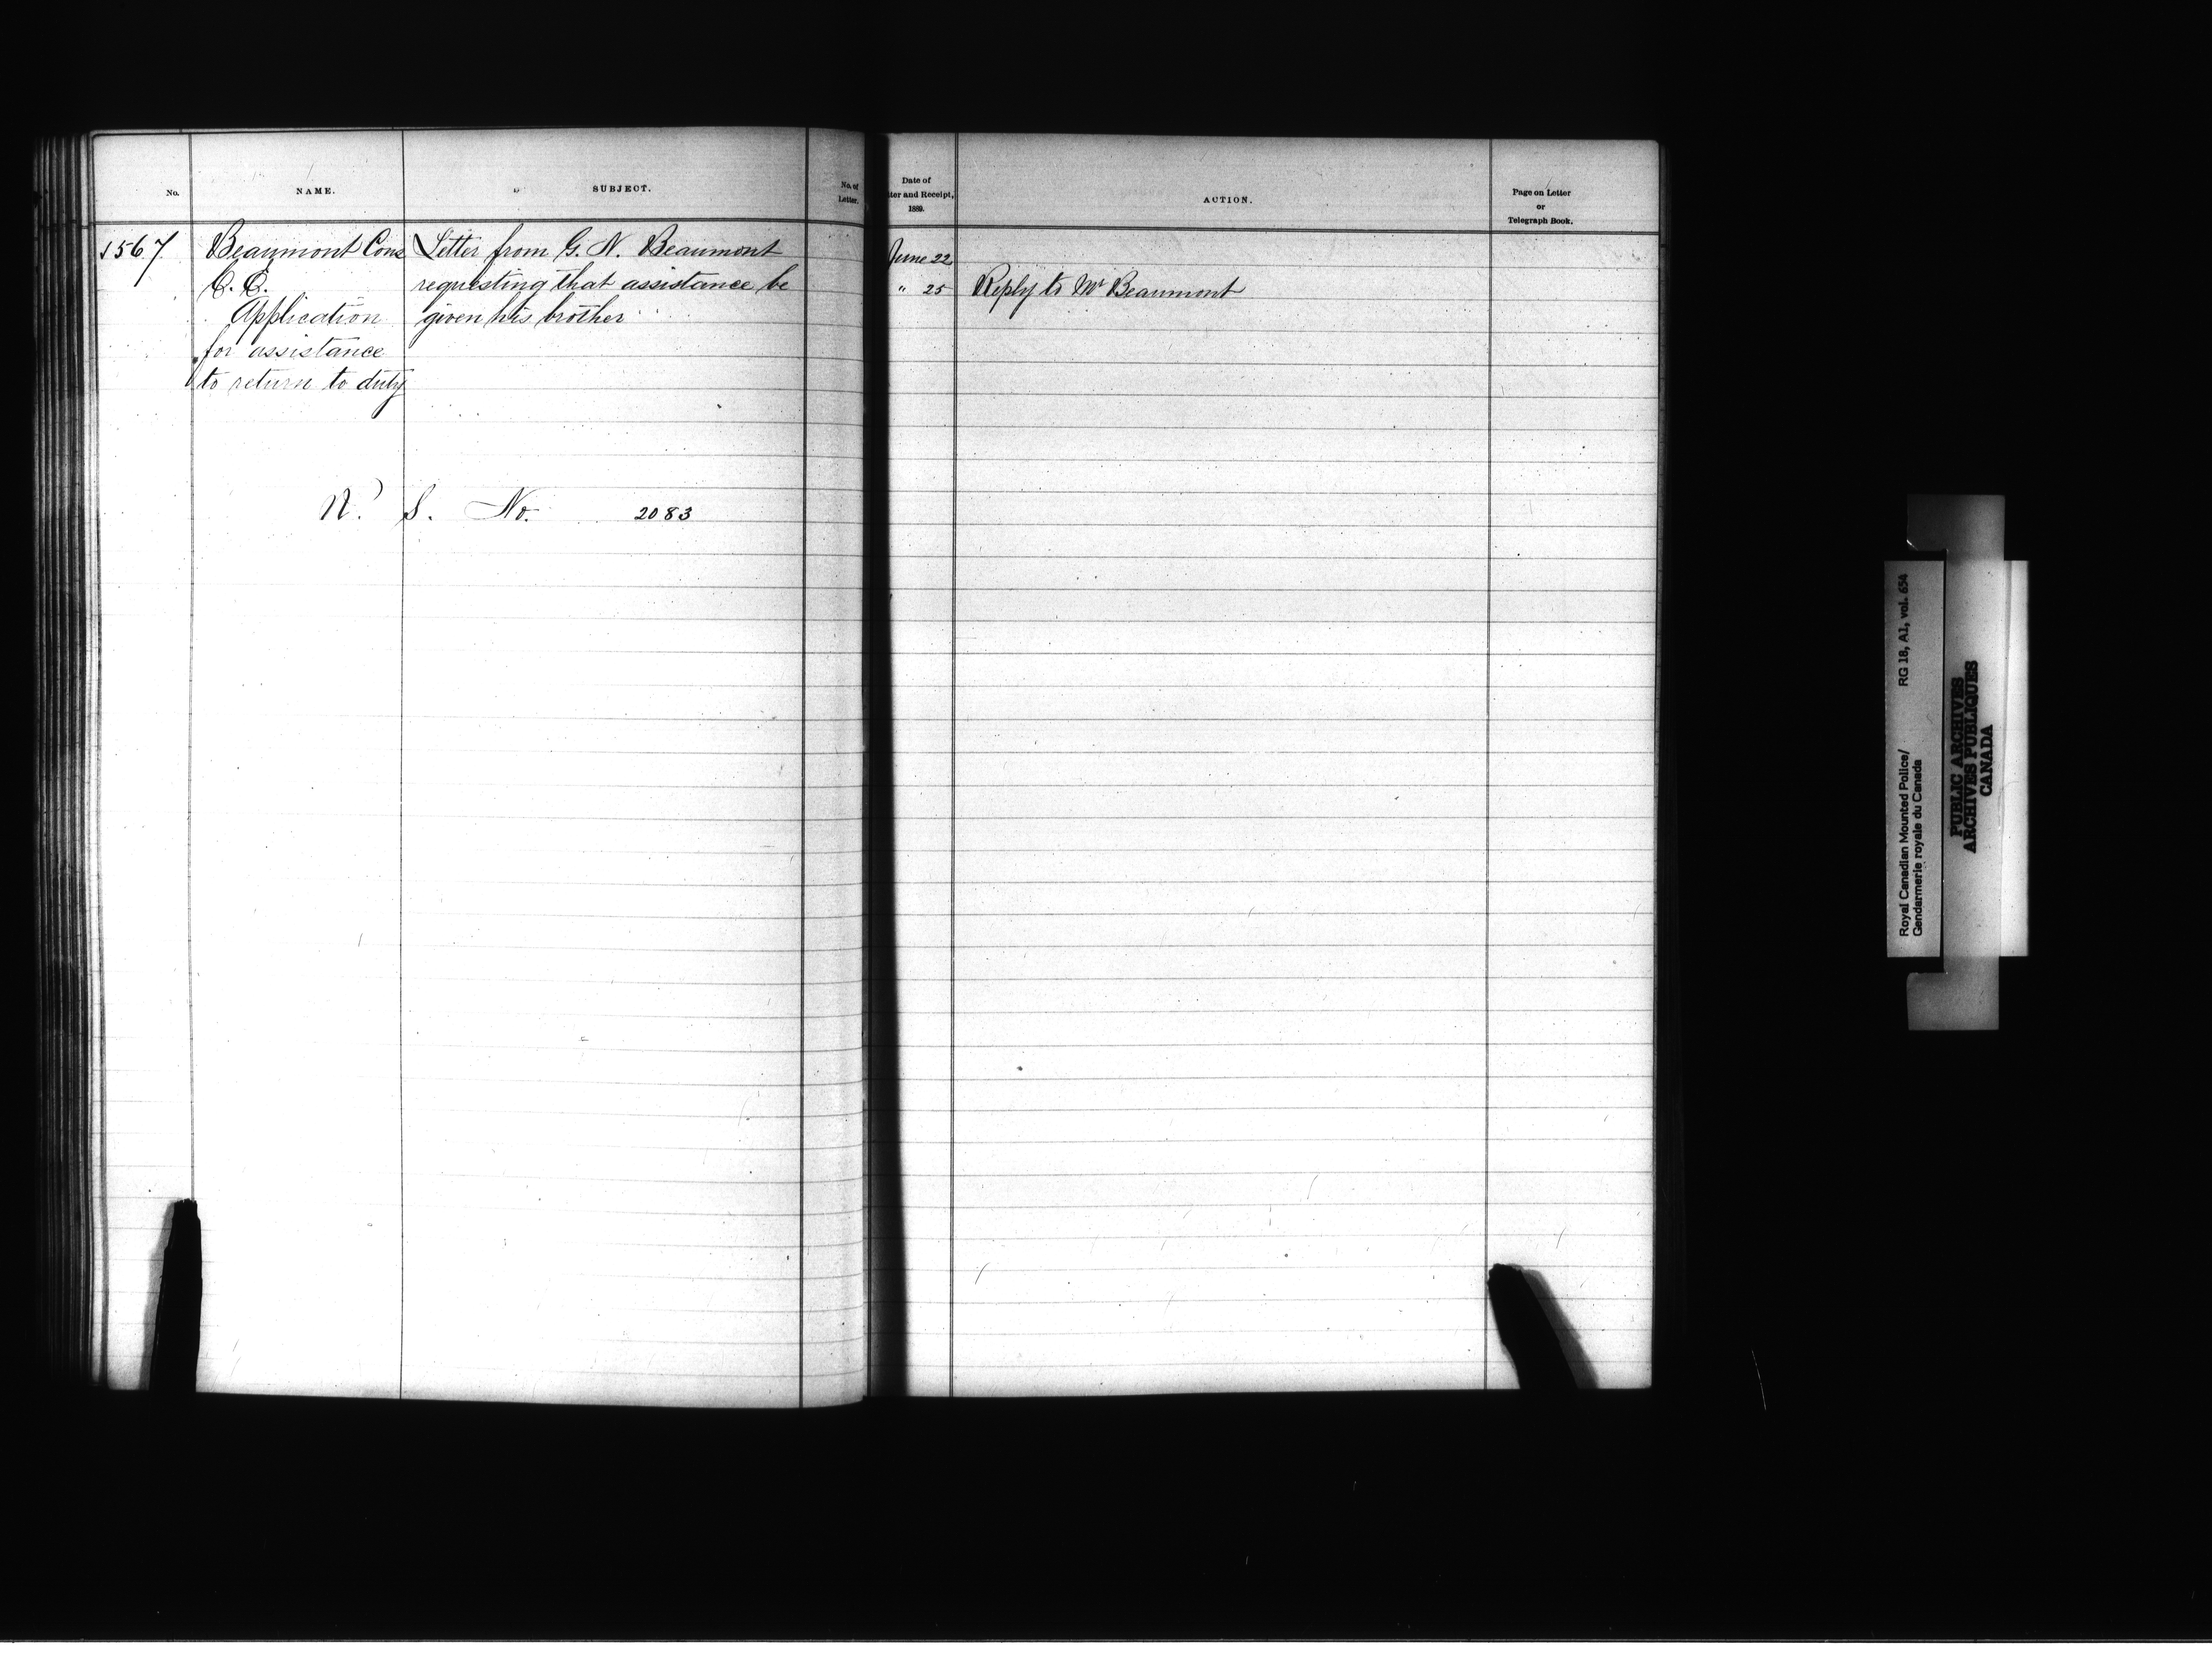 No.
NAME.
SUBJECT.
No. of
Letter.
1567
Beaumont Cons
C. C.
Application
for assistance
to return to duty
Letter from G. N. Beaumont
requesting that assistance be
given his brother
N. S. No. 2083
Date of
ter and Receipt,
1889.
ACTION.
Page on Letter
or
Telegraph Book.
June 22
" 25
Reply to Mr Beaumont
Royal Canadian Mounted Police/
Gendarmerie royale du Canada
RG 18, A1, vol. 654
PUBLIC ARCHIVES
ARCHIVES PUBLIQUES
CANADA